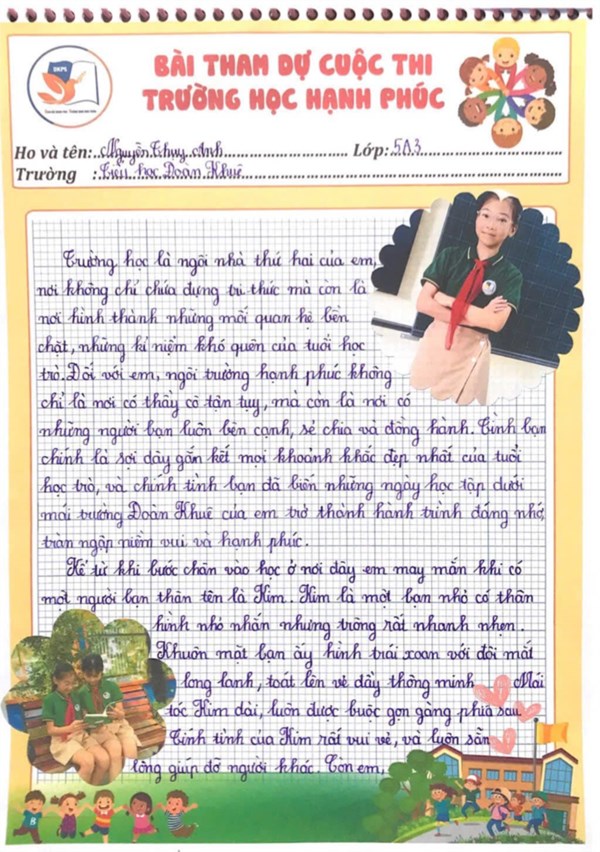 BÀI THAM DỰ CUỘC THI
TRƯỜNG HỌC HẠNH PHÚC
Họ và tên: Nguyễn Thuỳ Anh Lớp: 5A3
Trường : Tiểu học Đoàn Khuê
Trường học là ngôi nhà thứ hai của em,
nơi không chỉ chứa đựng tri thức mà còn là
nơi hình thành những mối quan hệ bền
chặt, những kỉ niệm khó quên của tuổi học
trò. Đối với em, ngôi trường hạnh phúc không
chỉ là nơi có thầy cô tận tụy, mà còn là nơi có
những người bạn luôn bên cạnh, sẻ chia và đồng hành. Tình bạn
chính là sợi dây gắn kết mọi khoảnh khắc đẹp nhất của tuổi
học trò, và chính tình bạn đã biến những ngày học tập dưới
mái trường Đoàn Khuê của em trở thành hành trình đáng nhớ,
tràn ngập niềm vui và hạnh phúc.
Kể từ khi bước chân vào học ở nơi đây em may mắn khi có
một người bạn thân tên là Kim. Kim là một bạn nhỏ có thân
hình nhỏ nhắn nhưng trông rất nhanh nhẹn.
Khuôn mặt bạn ấy hình trái xoan với đôi mắt
long lanh, toát lên vẻ đầy thông minh. Mái
tóc Kim dài, luôn được buộc gọn gàng phía sau.
Tính tình của Kim rất vui vẻ, và luôn sẵn
lòng giúp đỡ người khác. Còn em,